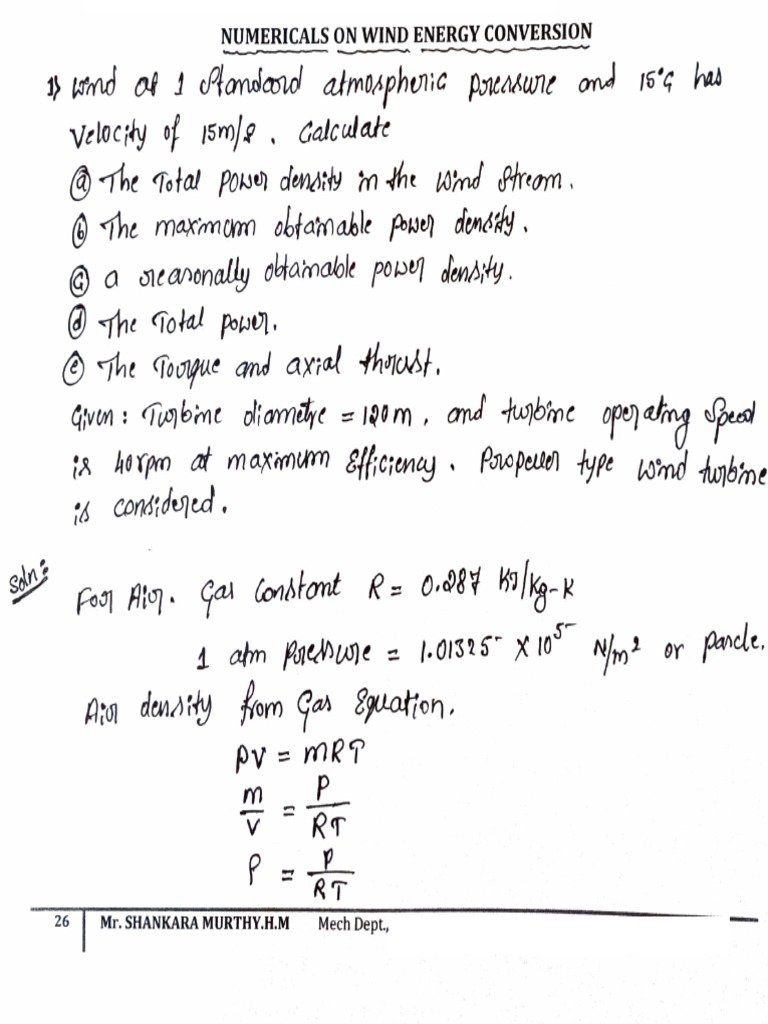 NUMERICALS ON WIND ENERGY CONVERSION
1) Wind at 1 Standard atmospheric pressure and 15°C has
Velocity of 15m/s. Calculate
ⓐ The Total power density in the wind stream.
ⓑ The maximum obtainable power density.
ⓒ a reasonally obtainable power density.
ⓓ The Total power.
ⓔ The Torque and axial thrust.
Given: Turbine diametre = 120m, and turbine operating Speed
is 40rpm at maximum Efficiency. Propeller type wind turbine
is considered.
Soln:
For Air. Gas Constant R = 0.287 KJ/Kg-K
1 atm pressure = 1.01325 × 10⁵ N/m² or pascle.
Air density from Gas Equation.
PV = MRT
m/V = P/RT
ρ = P/RT
26 Mr. SHANKARA MURTHY.H.M Mech Dept.,